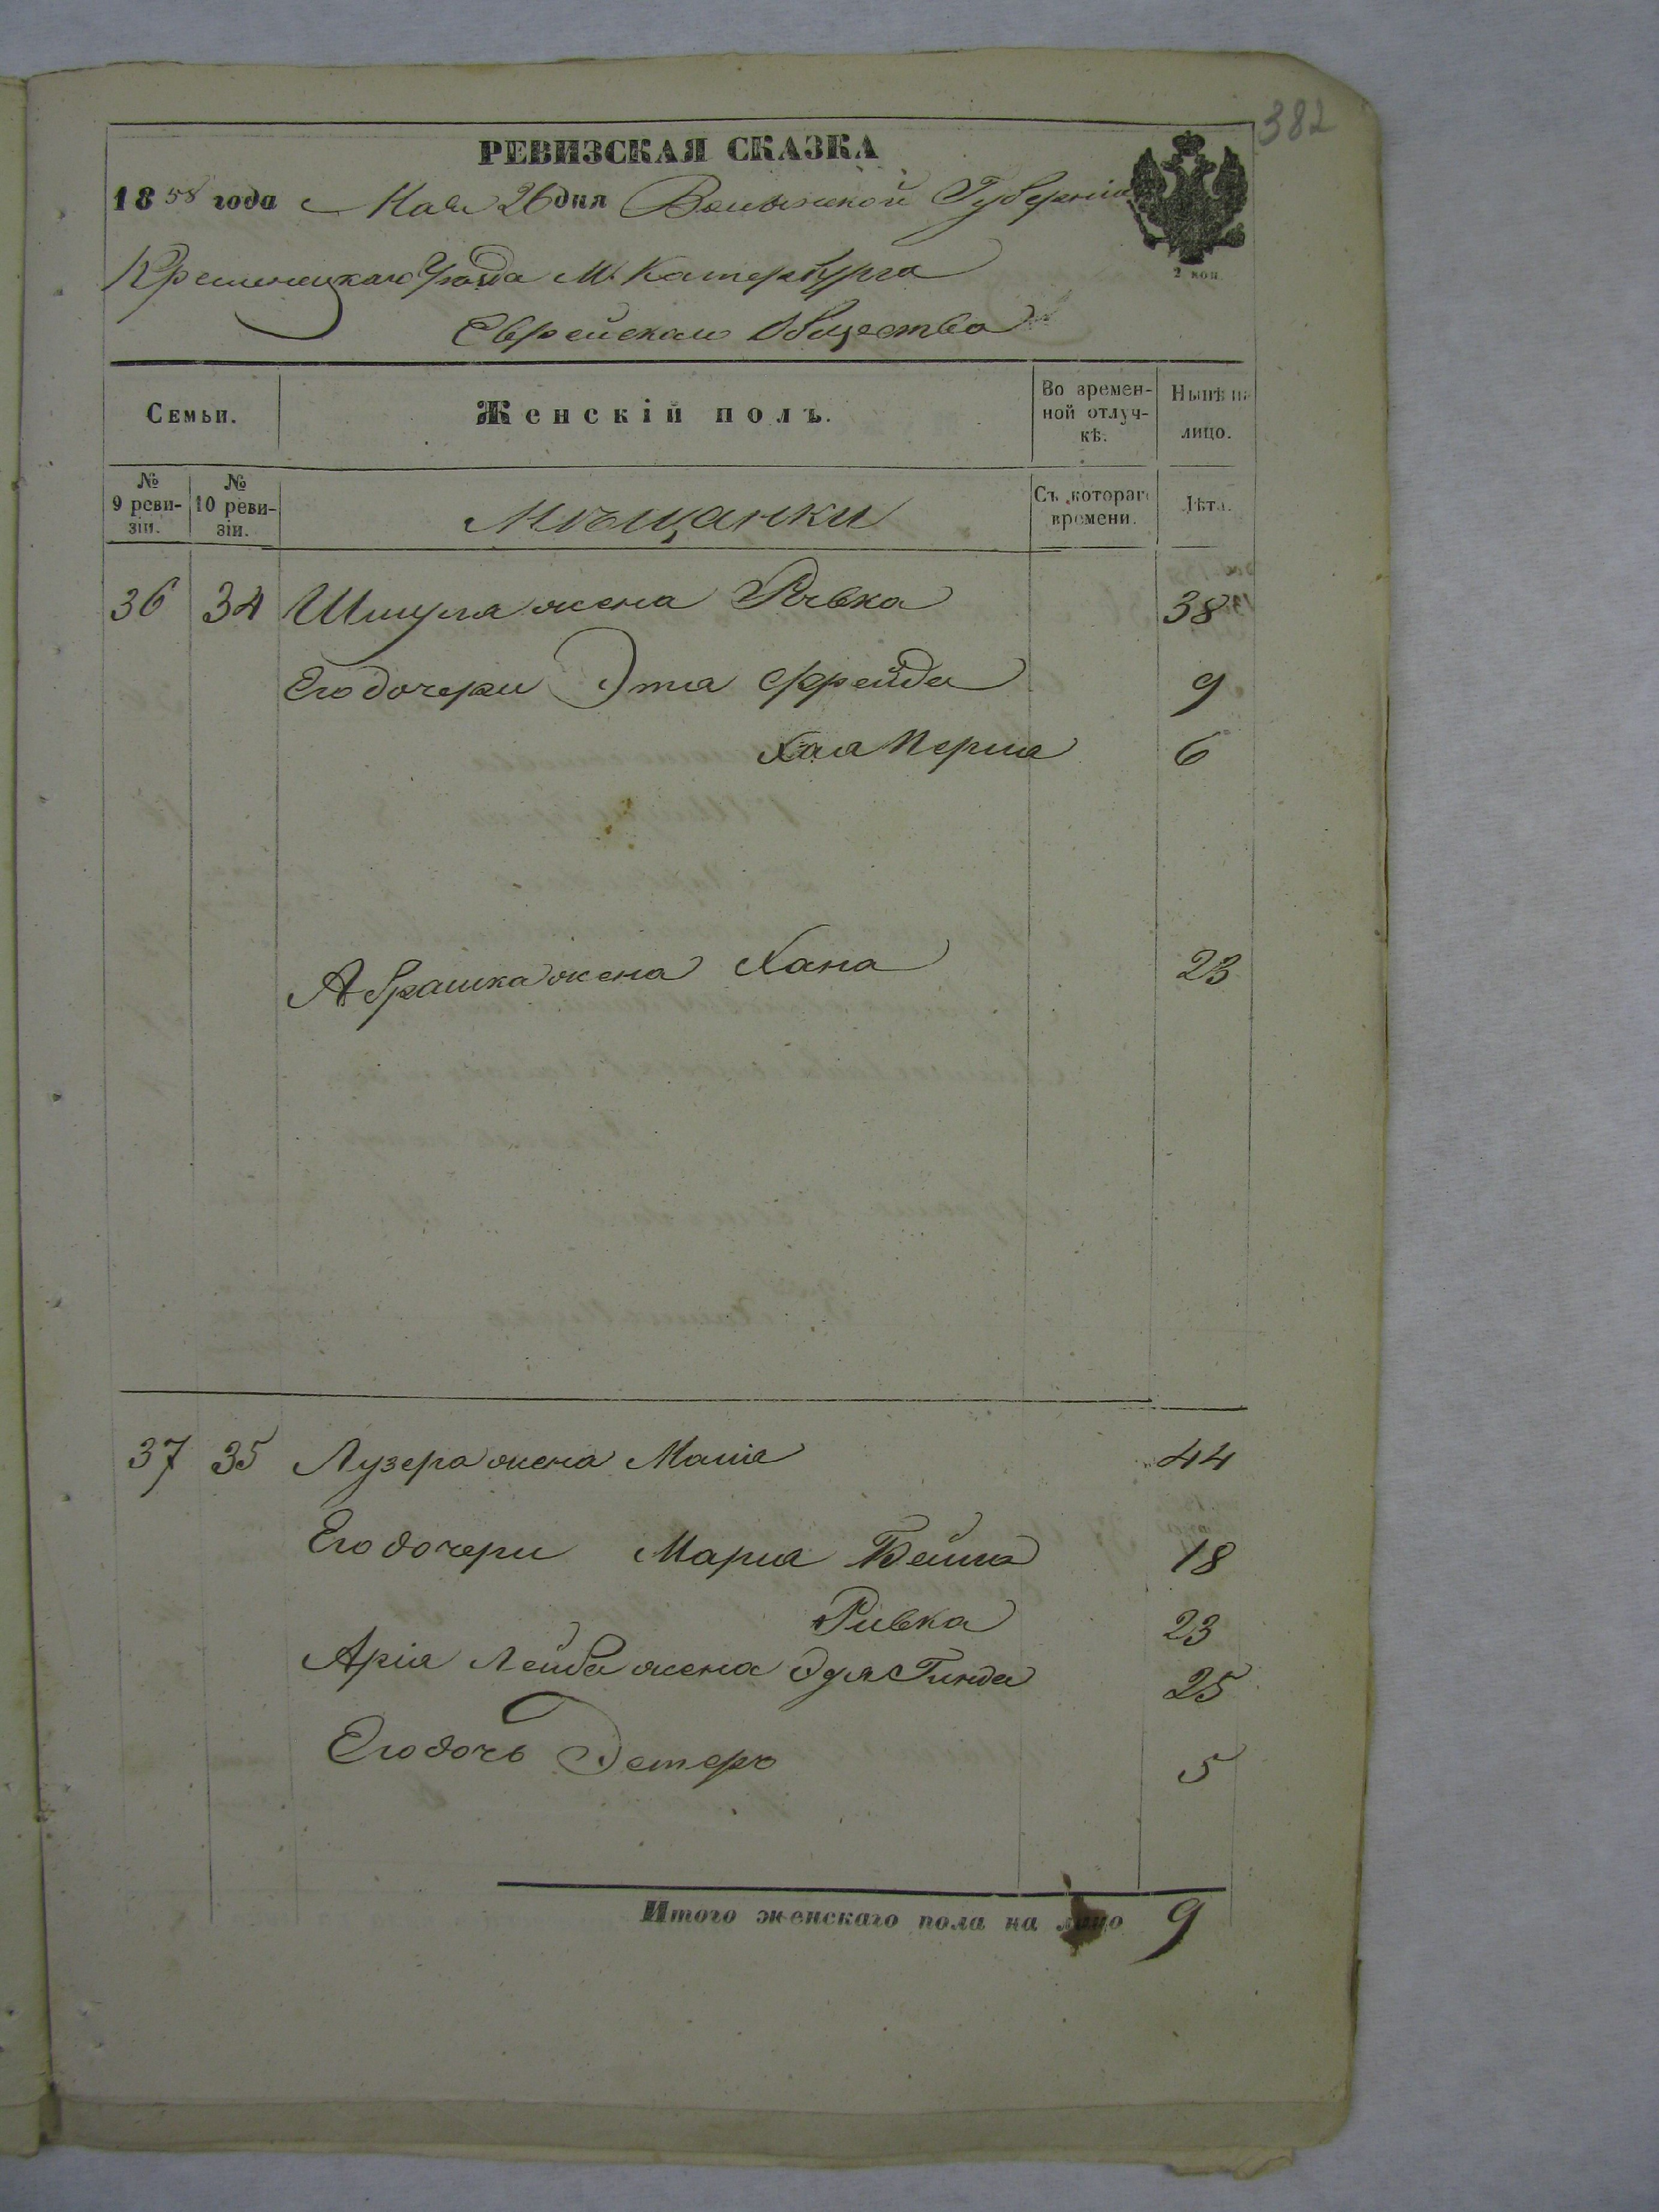 382
РЕВИЗСКАЯ СКАЗКА
1858 года Мая 26 дня Волынской Губерніи
2 коп.
Кременецкаго Уѣзда М. Катербурга
Еврейскаго Общества
Семьи.
Женскій полъ.
Во времен-
ной отлуч-
кѣ.
Нынѣ на
лицо.
№
9 реви-
зіи.
№
10 реви-
зіи.
Мѣщанки
Съ котораго
времени.
Лѣта.
36 34 Шмуля жена Ривка 38
Его дочери Эта Фрейда 9
Хая Перля 6
Абрашка жена Хана 23
37 35 Лузера жена Маня 44
Его дочери Маря Бейла 18
Ривка 23
Арія Лейба жена Эдя Гинда 25
Его дочь Эстеръ 5
Итого женскаго пола на лицо 9